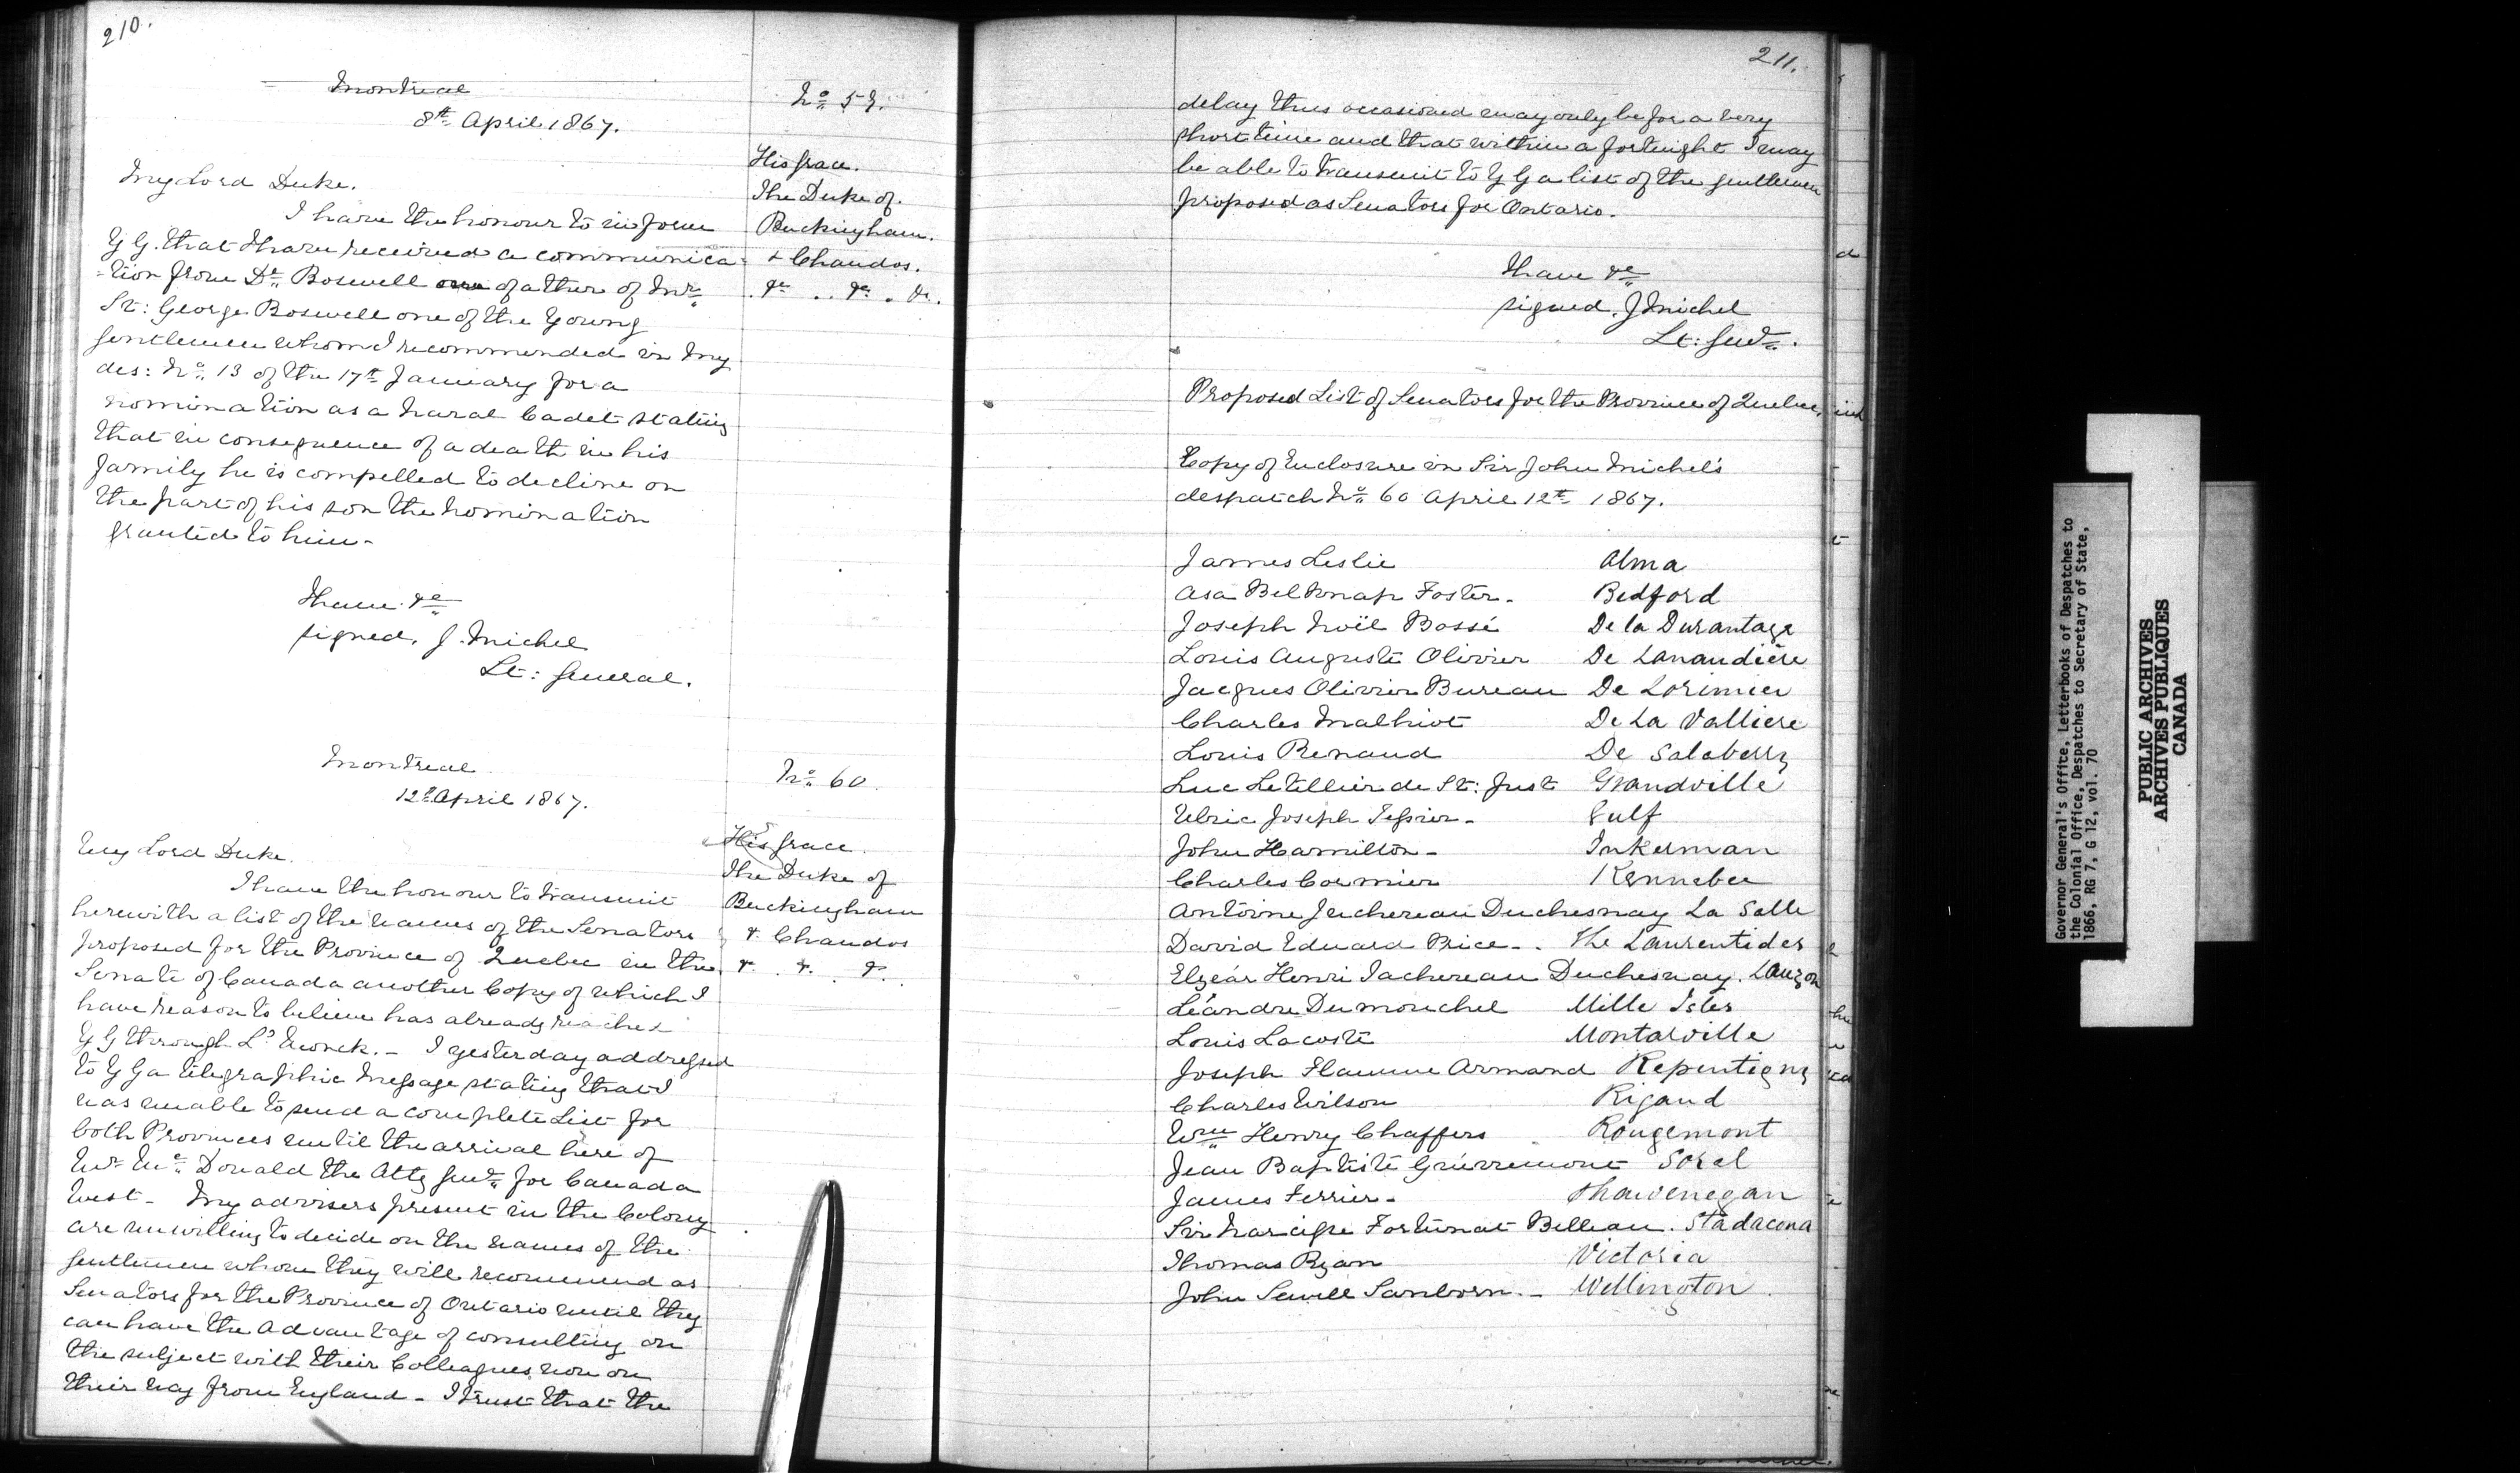 210.
Montreal
8th April 1867.
No 59.
His Grace.
The Duke of.
Buckingham.
& Chandos.
&c .. &c . &c.
My Lord Duke.
I have the honour to inform
Y G. that I have received a communica-
-tion from Dr. Boswell of ather of Mr.
St: George Boswell one of the Young
Gentlemen whom I recommended in my
des: No. 13 of the 17th January for a
nomination as a Naval Cadet stating
that in consequence of a death in his
family he is compelled to decline on
the part of his son the nomination
granted to him -
I have &c
signed. J. Michel
Lt: General.
Montreal
12th April 1867.
No 60.
His Grace.
The Duke of
Buckingham
& Chandos
&. &. &.
My Lord Duke.
I have the honour to transmit
herewith a list of the names of the Senators
proposed for the Province of Quebec in the
Senate of Canada another Copy of which I
have reason to believe has already reached
Y G through Ld Monck. - I yesterday addressed
to Y G a telegraphic Message stating that I
was unable to send a complete List for
both Provinces until the arrival here of
Mr Mc Donald the Atty Genl. for Canada
West - My advisers present in the Colony
are unwilling to decide on the names of the
gentlemen whom they will recommend as
Senators for the Province of Ontario until they
can have the advantage of consulting on
the subject with their Colleagues now on
their way from England - I trust that the
211.
delay thus occasioned may only be for a very
short time and that within a fortnight I may
be able to transmit to Y G a list of the gentlemen
proposed as Senators for Ontario.
I have &c
signed. J Michel
Lt: Genl.
Proposed List of Senators for the Province of Quebec.
Copy of Enclosure in Sir John Michel's
despatch No 60 April 12th 1867.
James Leslie Alma
Asa Belknap Foster - Bedford
Joseph Noël Bossé De la Durantaye
Louis Auguste Olivier De Lanaudière
Jacques Olivier Bureau De Lorimier
Charles Malhiot De La Valliere
Louis Renaud De Salaberry
Luc Letellier de St: Just Grandville
Ulric Joseph Tessier - Gulf
John Hamilton - Inkerman
Charles Cormier Kennebec
Antoine Juchereau Duchesnay La Salle
David Edward Price - . The Laurentides
Elzéar Henri Juchereau Duchesnay. Lauzon
Léandre Dumouchel Mille Isles
Louis Lacoste Montarville
Joseph Flamme Armand Repentigny
Charles Wilson Rigaud
Wm Henry Chaffers Rougemont
Jean Baptiste Guévremont Sorel
James Ferrier - Shawenegan
Sir Narcisse Fortunat Belleau. Stadacona
Thomas Ryan Victoria
John Sewell Sanborn. - Wellington
Governor General's Office, Letterbooks of Despatches to
the Colonial Office, Despatches to Secretary of State,
1866, RG 7, G 12, vol. 70
PUBLIC ARCHIVES
ARCHIVES PUBLIQUES
CANADA